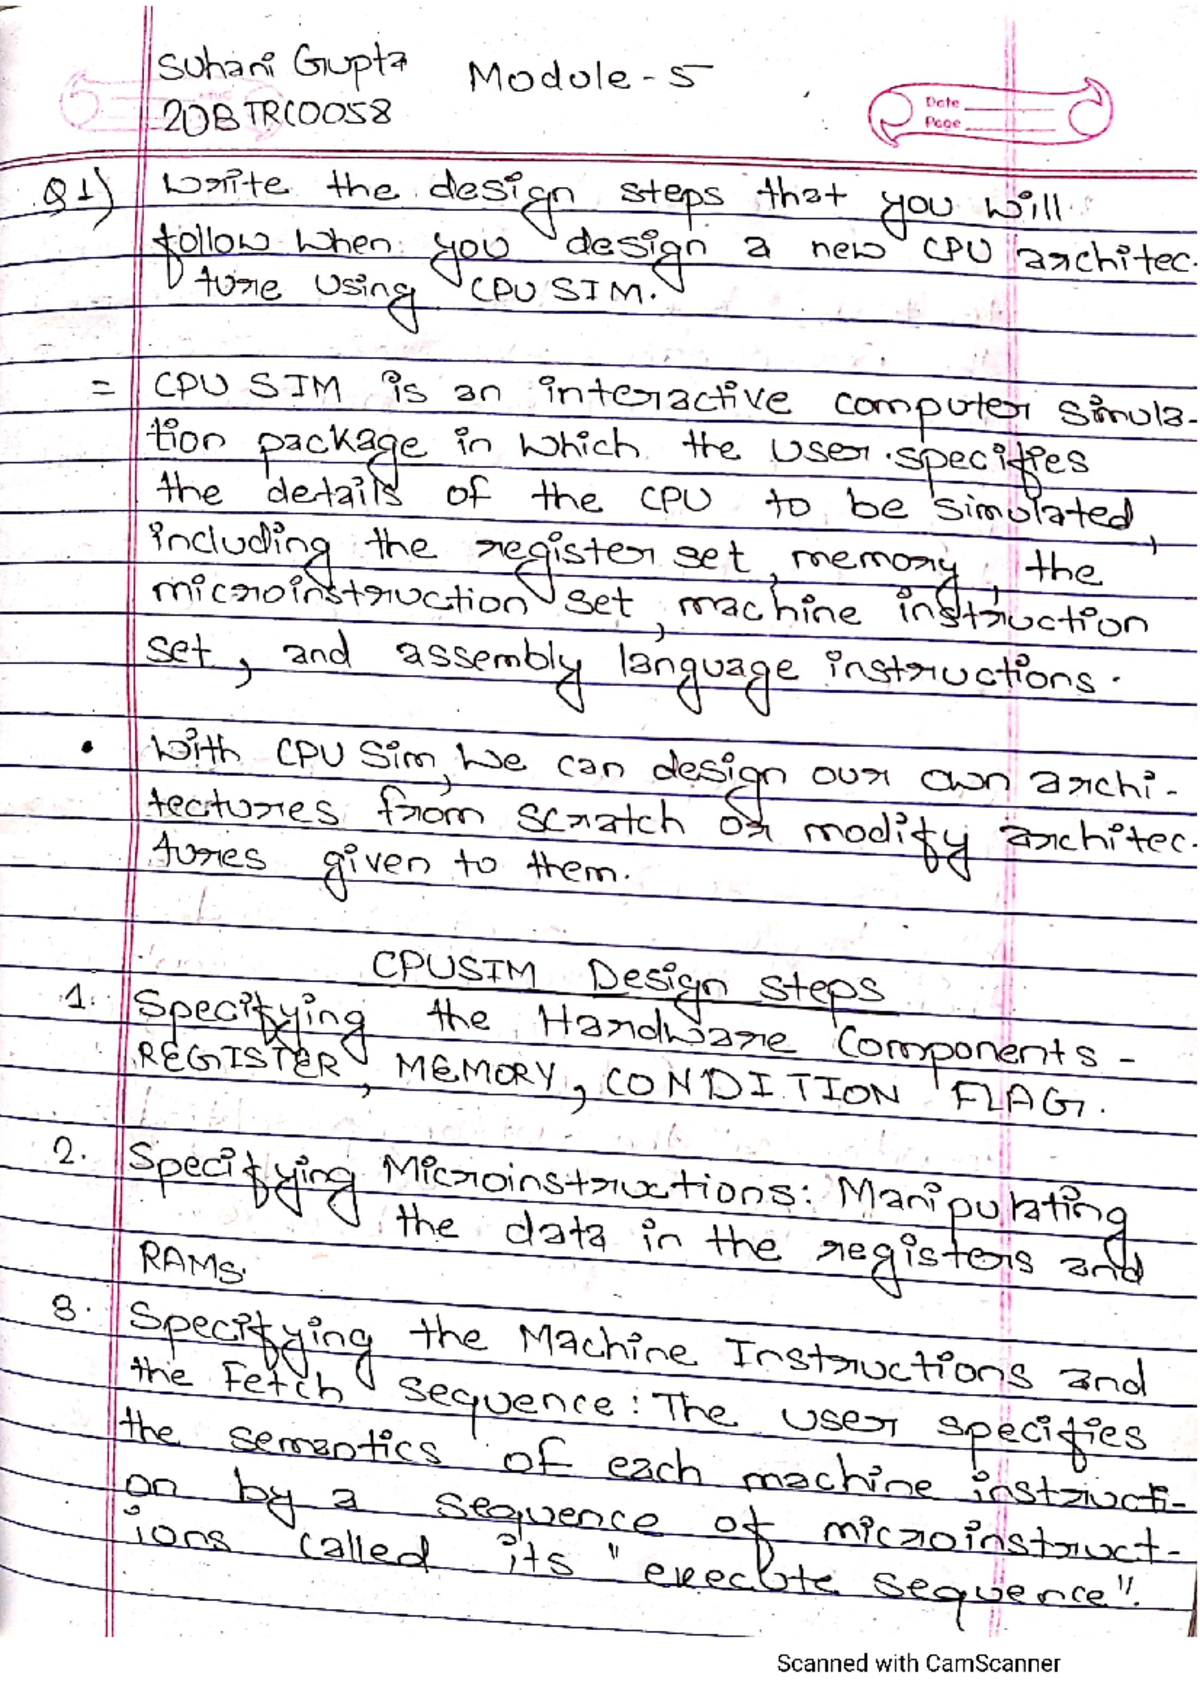 Suhani Gupta Module - 5
20BTRCO058
Date
Page
Q1) Write the design steps that you will
follow when you design a new CPU architec-
ture using CPUSIM.
= CPU SIM is an interactive computer simula-
tion package in which the user specifies
the details of the CPU to be simulated,
including the register set, memory, the
microinstruction set, machine instruction
set, and assembly language instructions.
• With CPU Sim, We can design our own archi-
tectures from scratch or modify architec-
tures given to them.
CPUSIM Design Steps
1. Specifying the Hardware Components -
REGISTER, MEMORY, CONDITION FLAG.
2. Specifying Microinstructions: Manipulating
the data in the registers and
RAMs.
3. Specifying the Machine Instructions and
the Fetch sequence: The user specifies
the semantics of each machine instructi-
on by a sequence of microinstruct-
ions called its "execute sequence".
Scanned with CamScanner